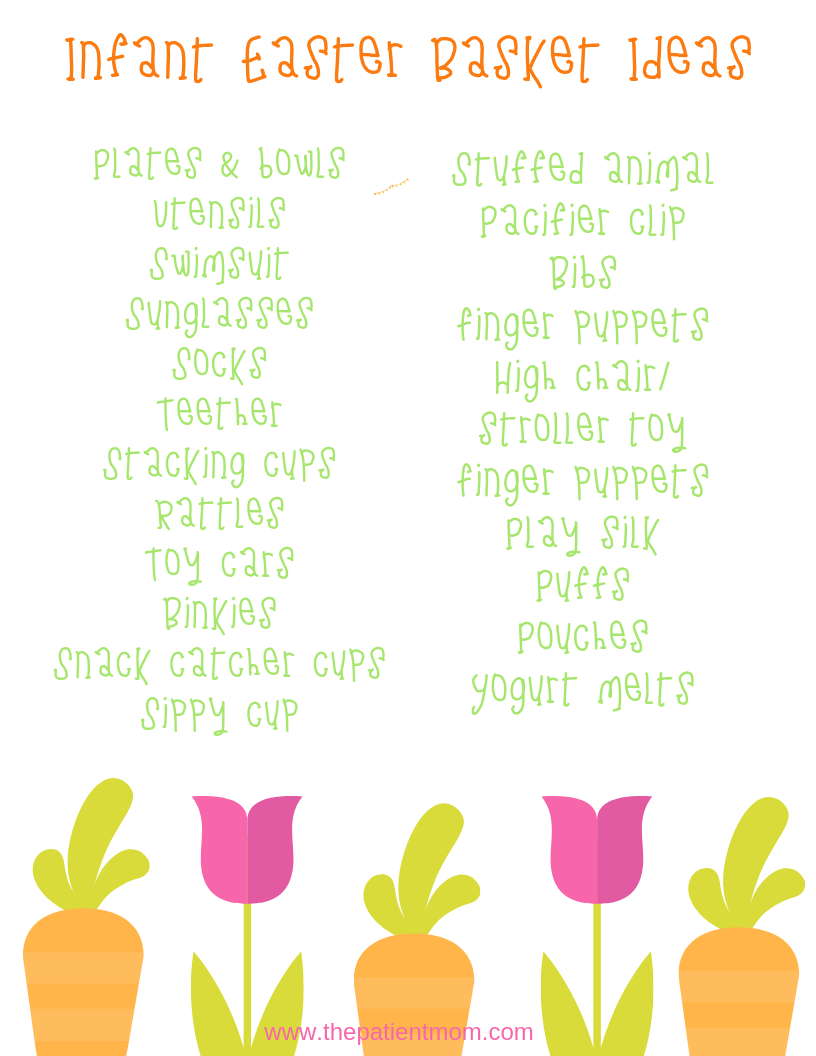 Infant Easter Basket Ideas
Plates & bowls
utensils
Swimsuit
Sunglasses
Socks
Teether
Stacking cups
Rattles
Toy cars
Binkies
Snack catcher cups
Sippy cup
Stuffed animal
Pacifier clip
Bibs
finger puppets
High chair/
Stroller toy
finger puppets
Play silk
Puffs
Pouches
yogurt melts
www.thepatientmom.com